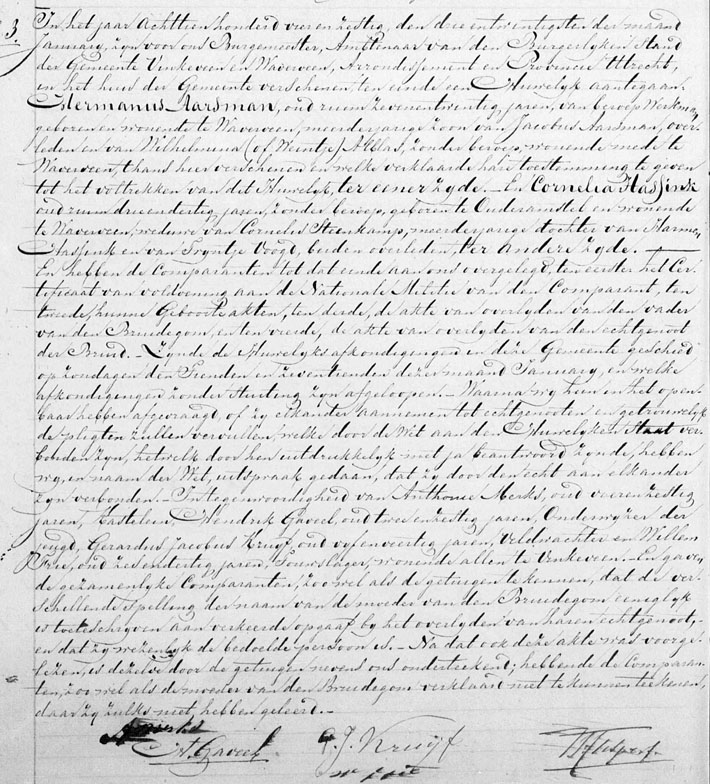 3
In het jaar Achttien honderd vier en zestig, den drie entwintigsten der maand
January, zyn voor ons Burgemeester, Ambtenaar van den Burgerlyken Stand
der Gemeente Vinkeveen en Waverveen, Arrondissement en Provincie Utrecht,
in het huis der Gemeente verschenen, ten einde een Huwelyk aantegaan:
Hermanus Aarsman, oud ruim zevenentwintig jaren, van beroep Werkman,
geboren en wonende te Waverveen, meerderjarige zoon van Jacobus Aarsman, over-
leden en van Wilhelmina (of Weintje) Albas, zonder beroep, wonende mede te
Waverveen, thans hier verschenen en welke verklaarde hare toestemming te geven
tot het voltrekken van dit Huwelyk, ter eener zyde. – En Cornelia Hassink
oud ruim drieendertig jaren, zonder beroep, geboren te Ouderamstel en wonende
te Waverveen, weduwe van Cornelis Steenkamp, meerderjarige dochter van Harmen
Hassink en van Tryntje Voogd, beiden overleden, ter andere zyde. –
En hebben de Comparanten tot dat einde aan ons overgelegd, ten eerste het Cer-
tificaat van voldoening aan de Nationale Militie van den Comparant, ten
tweede, hunne Geboorteakten, ten derde, de akte van overlyden van den vader
van den Bruidegom, en ten vierde, de akte van overlyden van den echtgenoot
der Bruid. – Zynde de Huwelyks afkondigingen in deze Gemeente geschied
op zondagen den Tienden en Zeventienden dezer maand January, en welke
afkondigingen zonder stuiting zyn afgeloopen. – Waarna wy hun in het open-
baar hebben afgevraagd, of zy elkander aannemen tot echtgenooten en getrouwelyk
de pligten zullen vervullen, welke door de Wet aan den Huwelyken Staat ver-
bonden zyn, hetwelk door hen uitdrukkelyk met ja beantwoord zynde, hebben
wy, in naam der Wet, uitspraak gedaan, dat zy door den echt aan elkander
zyn verbonden. – In tegenwoordigheid van Anthonie Merks, oud vier en zestig
jaren, Kastelein, Hendrik Gaveel, oud twee en zestig jaren, Onderwyzer der
jeugd, Gerardus Jacobus Kruyf, oud vyfenveertig jaren, Veldwachter en Willem
Pfie, oud zesendertig jaren, Touwslager, wonende allen te Vinkeveen. – En gaven
de gezamenlyke Comparanten, zoo wel als de getuigen te kennen, dat de ver-
schillende spelling der naam van de moeder van den Bruidegom eeniglyk
is toeteschryven aan verkeerde opgaaf by het overlyden van haren echtgenoot,
en dat zy wezenlyk de bedoelde persoon is. – Na dat ook deze akte was voorge-
lezen, is dezelve door de getuigen nevens ons onderteekend; hebbende de Comparan-
ten, zoo wel als de moeder van den Bruidegom verklaard niet te kunnen teekenen,
daar zy zulks niet hebben geleerd. –
A Merks
H. Gaveel G. J. Kruyf